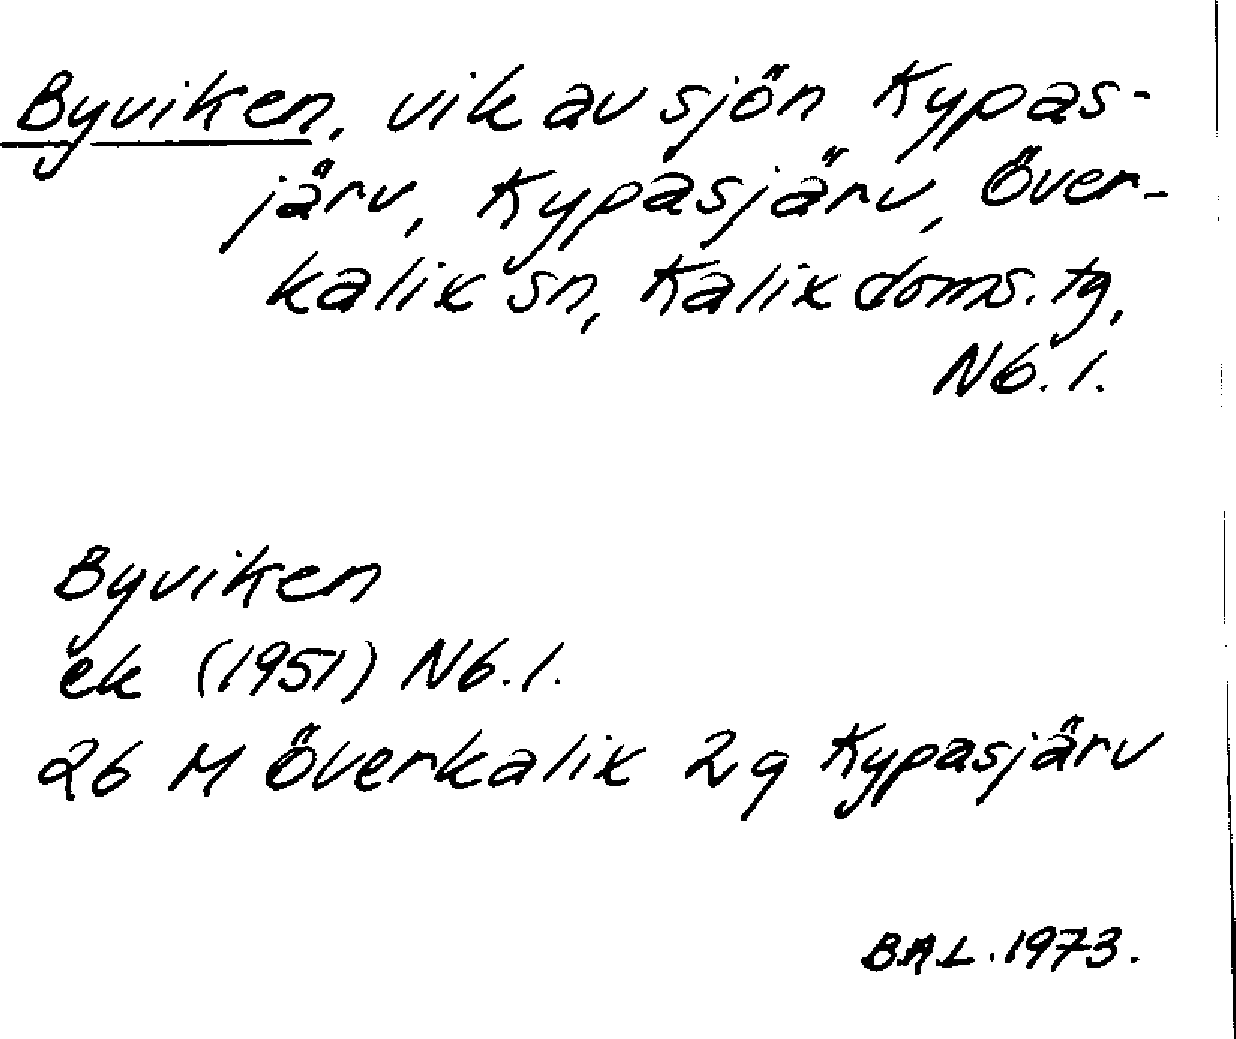 Byviken, vik av sjön Kypas-
järv, Kypasjärv, Över-
kalix sn, Kalix doms. tg,
Nb. l.
Byviken
ek (1951) Nb. l.
26 M Överkalix 2g Kypasjärv
B.A.L. 1973.